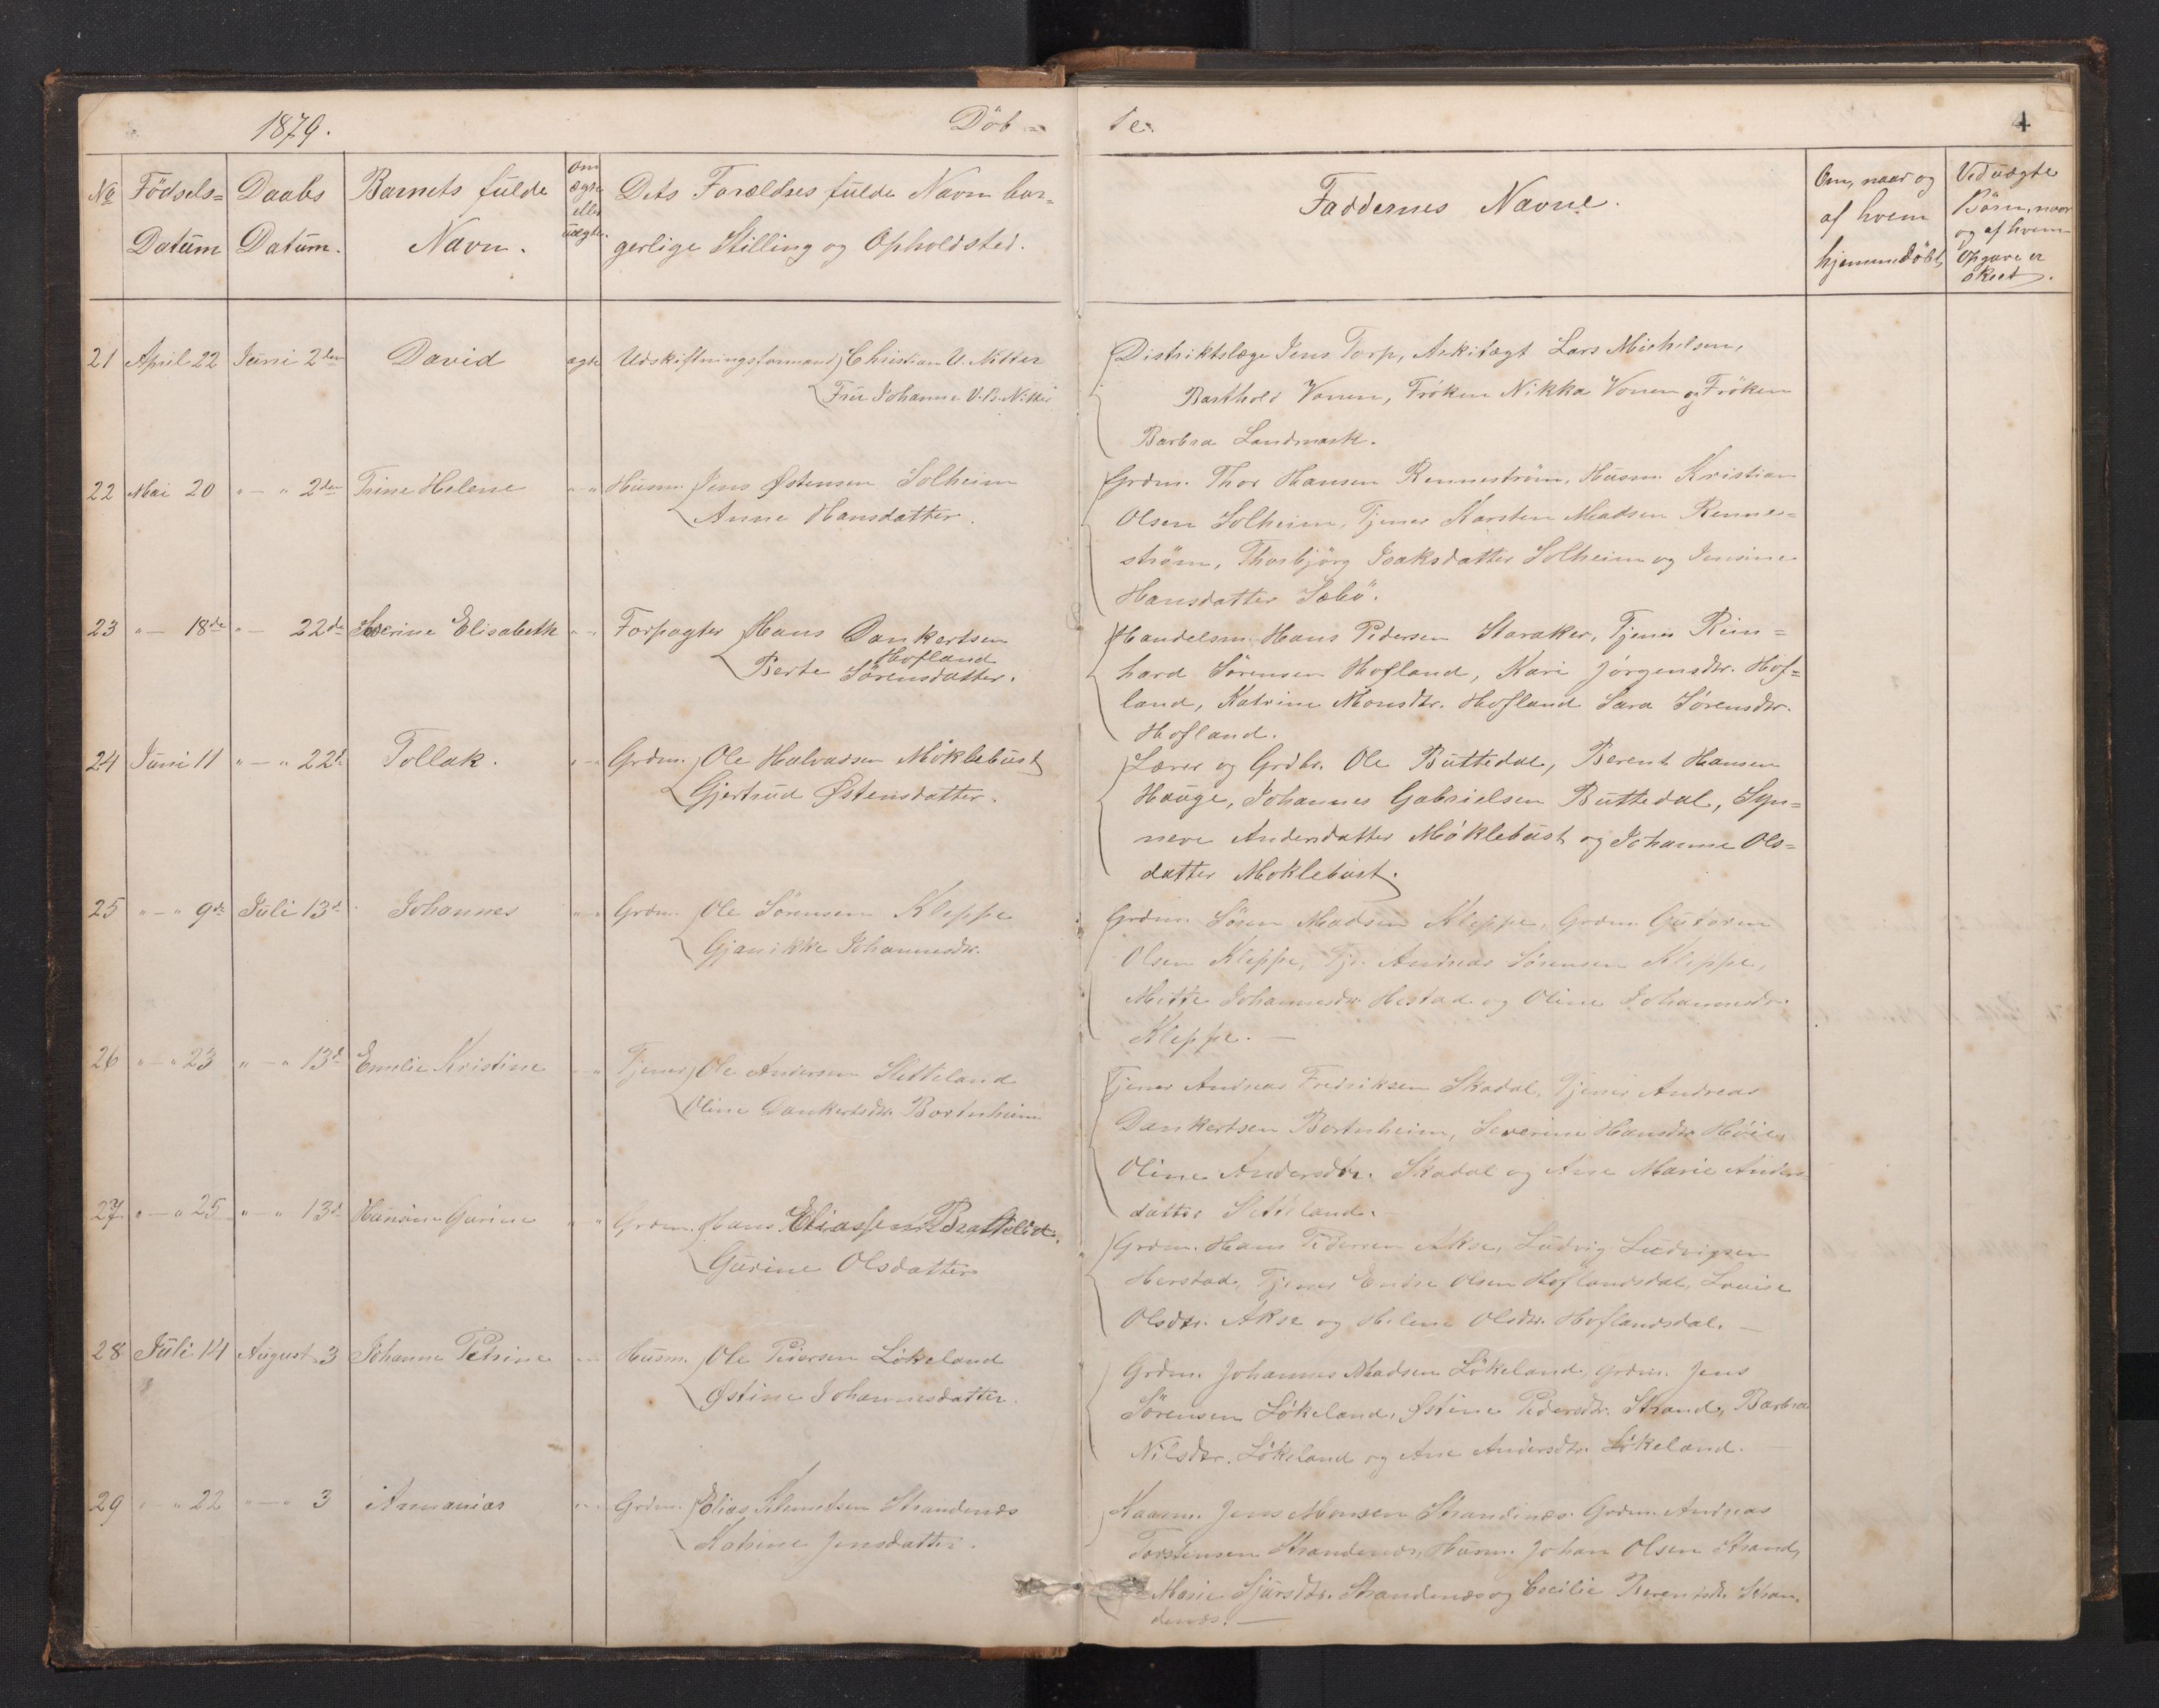 1879. Döb = te. 4
No Födsels= Datum Daabs Datum. Barnets fulde Navn. Om ægte eller uægte. Dets Forældres fulde Navn bor=
gerlige Stilling og Opholdsted. Faddernes Navne. Om, naar og af hvem hjemmedöbt Ved uægte Börn, naar og af hvem Opgave er skeet.
21 April 22 Juni 2den David ægte Udskiftningsformand Christian U. Nitter
Fru Johanne V. B. Nitter
Distriktslæge Jens Torp, Arkitægt Lars Michelsen,
Barthold Vonen, Fröken Nikka Vonen og Fröken
Barbra Landmark.
22 Mai 20 " — " 2den Trine Helene " — " Husm. Jens Østensen Solheim
Anne Hansdatter.
Grdm. Thor Hansen Rennestrøm, Husm. Kristian
Olsen Solheim, Tjener Karsten Madsen Renne=
strøm, Thorbjörg Isaksdatter Solheim og Jensine
Hansdatter Sæbö.
23 " — 18de " — 22de Elisabeth " — " Forpagter Hans Dankertsen
Hofland
Berte Sörensdatter.
Handelsm. Hans Pedersen Staraker, Tjener Rein=
hard Sörensen Hofland, Kari Jörgensdtr. Hof=
land, Katrine Monsdtr. Hofland Sara Sörensdtr.
Hofland.
24 Juni 11 " — " 22d Tollak. " — " Grdm. Ole Halvasen Möklebust
Gjertrud Østensdatter.
Lærer og Grdbr. Ole Buttedal, Berent Hansen
Hauge, Johannes Gabrielsen Buttedal, Syn=
neve Andersdatter Möklebust og Johanne Ols=
datter Moklebust.
25 " — " 9de Juli 13d Johannes " — " Grdm. Ole Sörensen Kleppe
Gjanikke Johannesdtr.
Grdm. Sören Madsen Kleppe, Grdm. Gutorm
Olsen Kleppe, Tjr. Andreas Sörensen Kleppe,
Mitte Johannesdtr. Hestad og Oline Johannesdtr.
Kleppe. —
26 " — " 23 " — " 13d Emilie Kristine " — " Tjener Ole Andersen Sletteland
Oline Dankertsdtr. Bortnheim
Tjener Andreas Fredriksen Skadal, Tjener Andreas
Dankertsen Bortnheim, Severine Hansdtr. Höie,
Oline Andersdtr. Skadal og Ane Marie Anders=
datter Sletteland.
27 " — " 25 " — " 13d Hansine Gurine " " Grdm. Hans Eliassen Brattelid.
Gurine Olsdatter
Grdm. Hans Pedersen Akse, Ludvig Ludvigsen
Herstad, Tjener Endre Olsen Hoflandsdal, Lovise
Olsdtr. Akse og Helene Olsdtr. Hoflandsdal. —
28 Juli 14 August 3 Johanne Petrine " — " Husm. Ole Pedersen Lökeland
Østine Johannesdatter.
Grdm. Johannes Madsen Lökeland, Grdm. Jens
Sörensen Lökeland, Østine Pedersdtr. Strand, Barbra
Nilsdtr. Lökeland og Ane Andersdtr. Lökeland. —
29 " — " 22 " — " 3 Annanias " — " Grdm. Elias Klemetsen Strandenæs
Katrine Jensdatter.
Kaarm. Jens Monsen Strandenæs. Grdm. Andreas
Torstensen Strandenæs, Husm. Johan Olsen Strand,
Marie Sjursdtr. Strandenæs og Cecilie Berentsdtr. Stran=
denæs. —